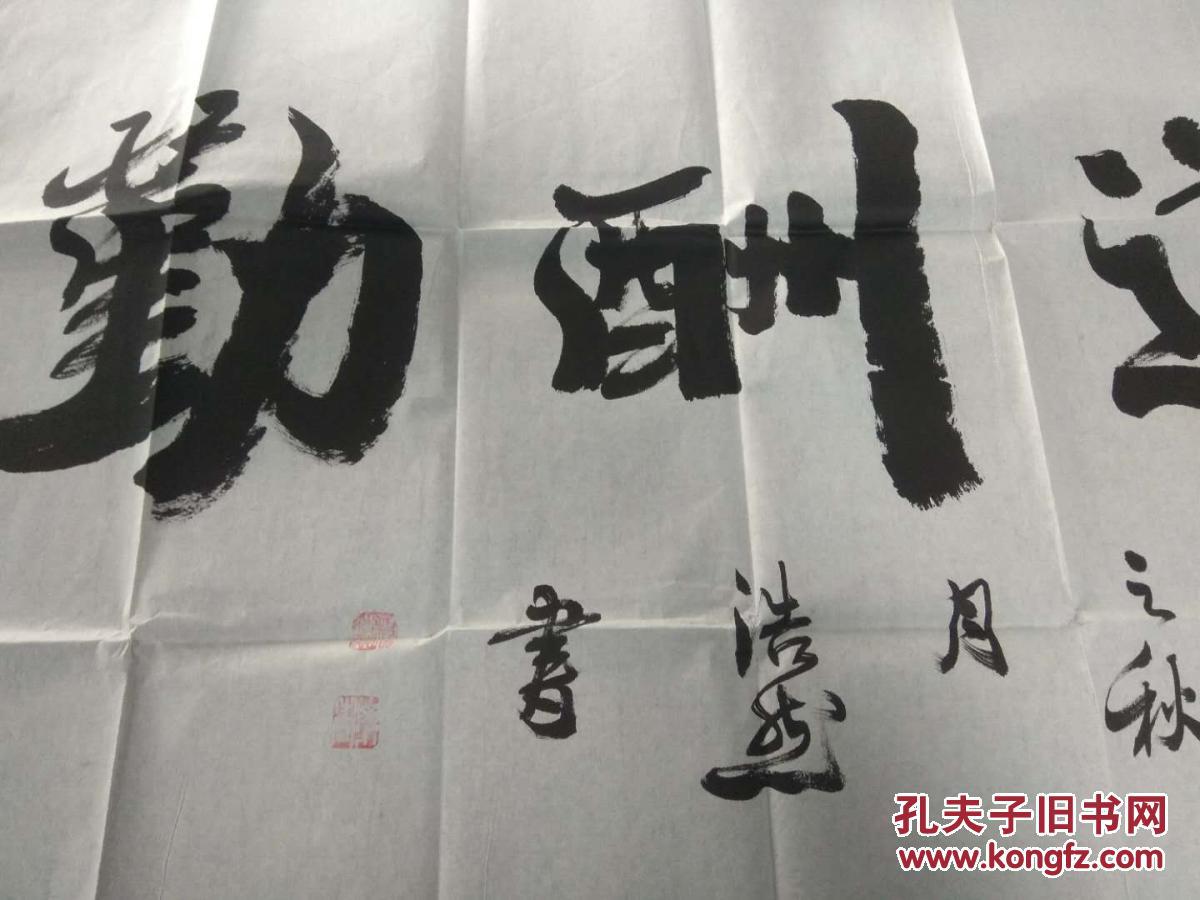 道酬勤
之秋
月
浩然
書
孔夫子旧书网
www.kongfz.com